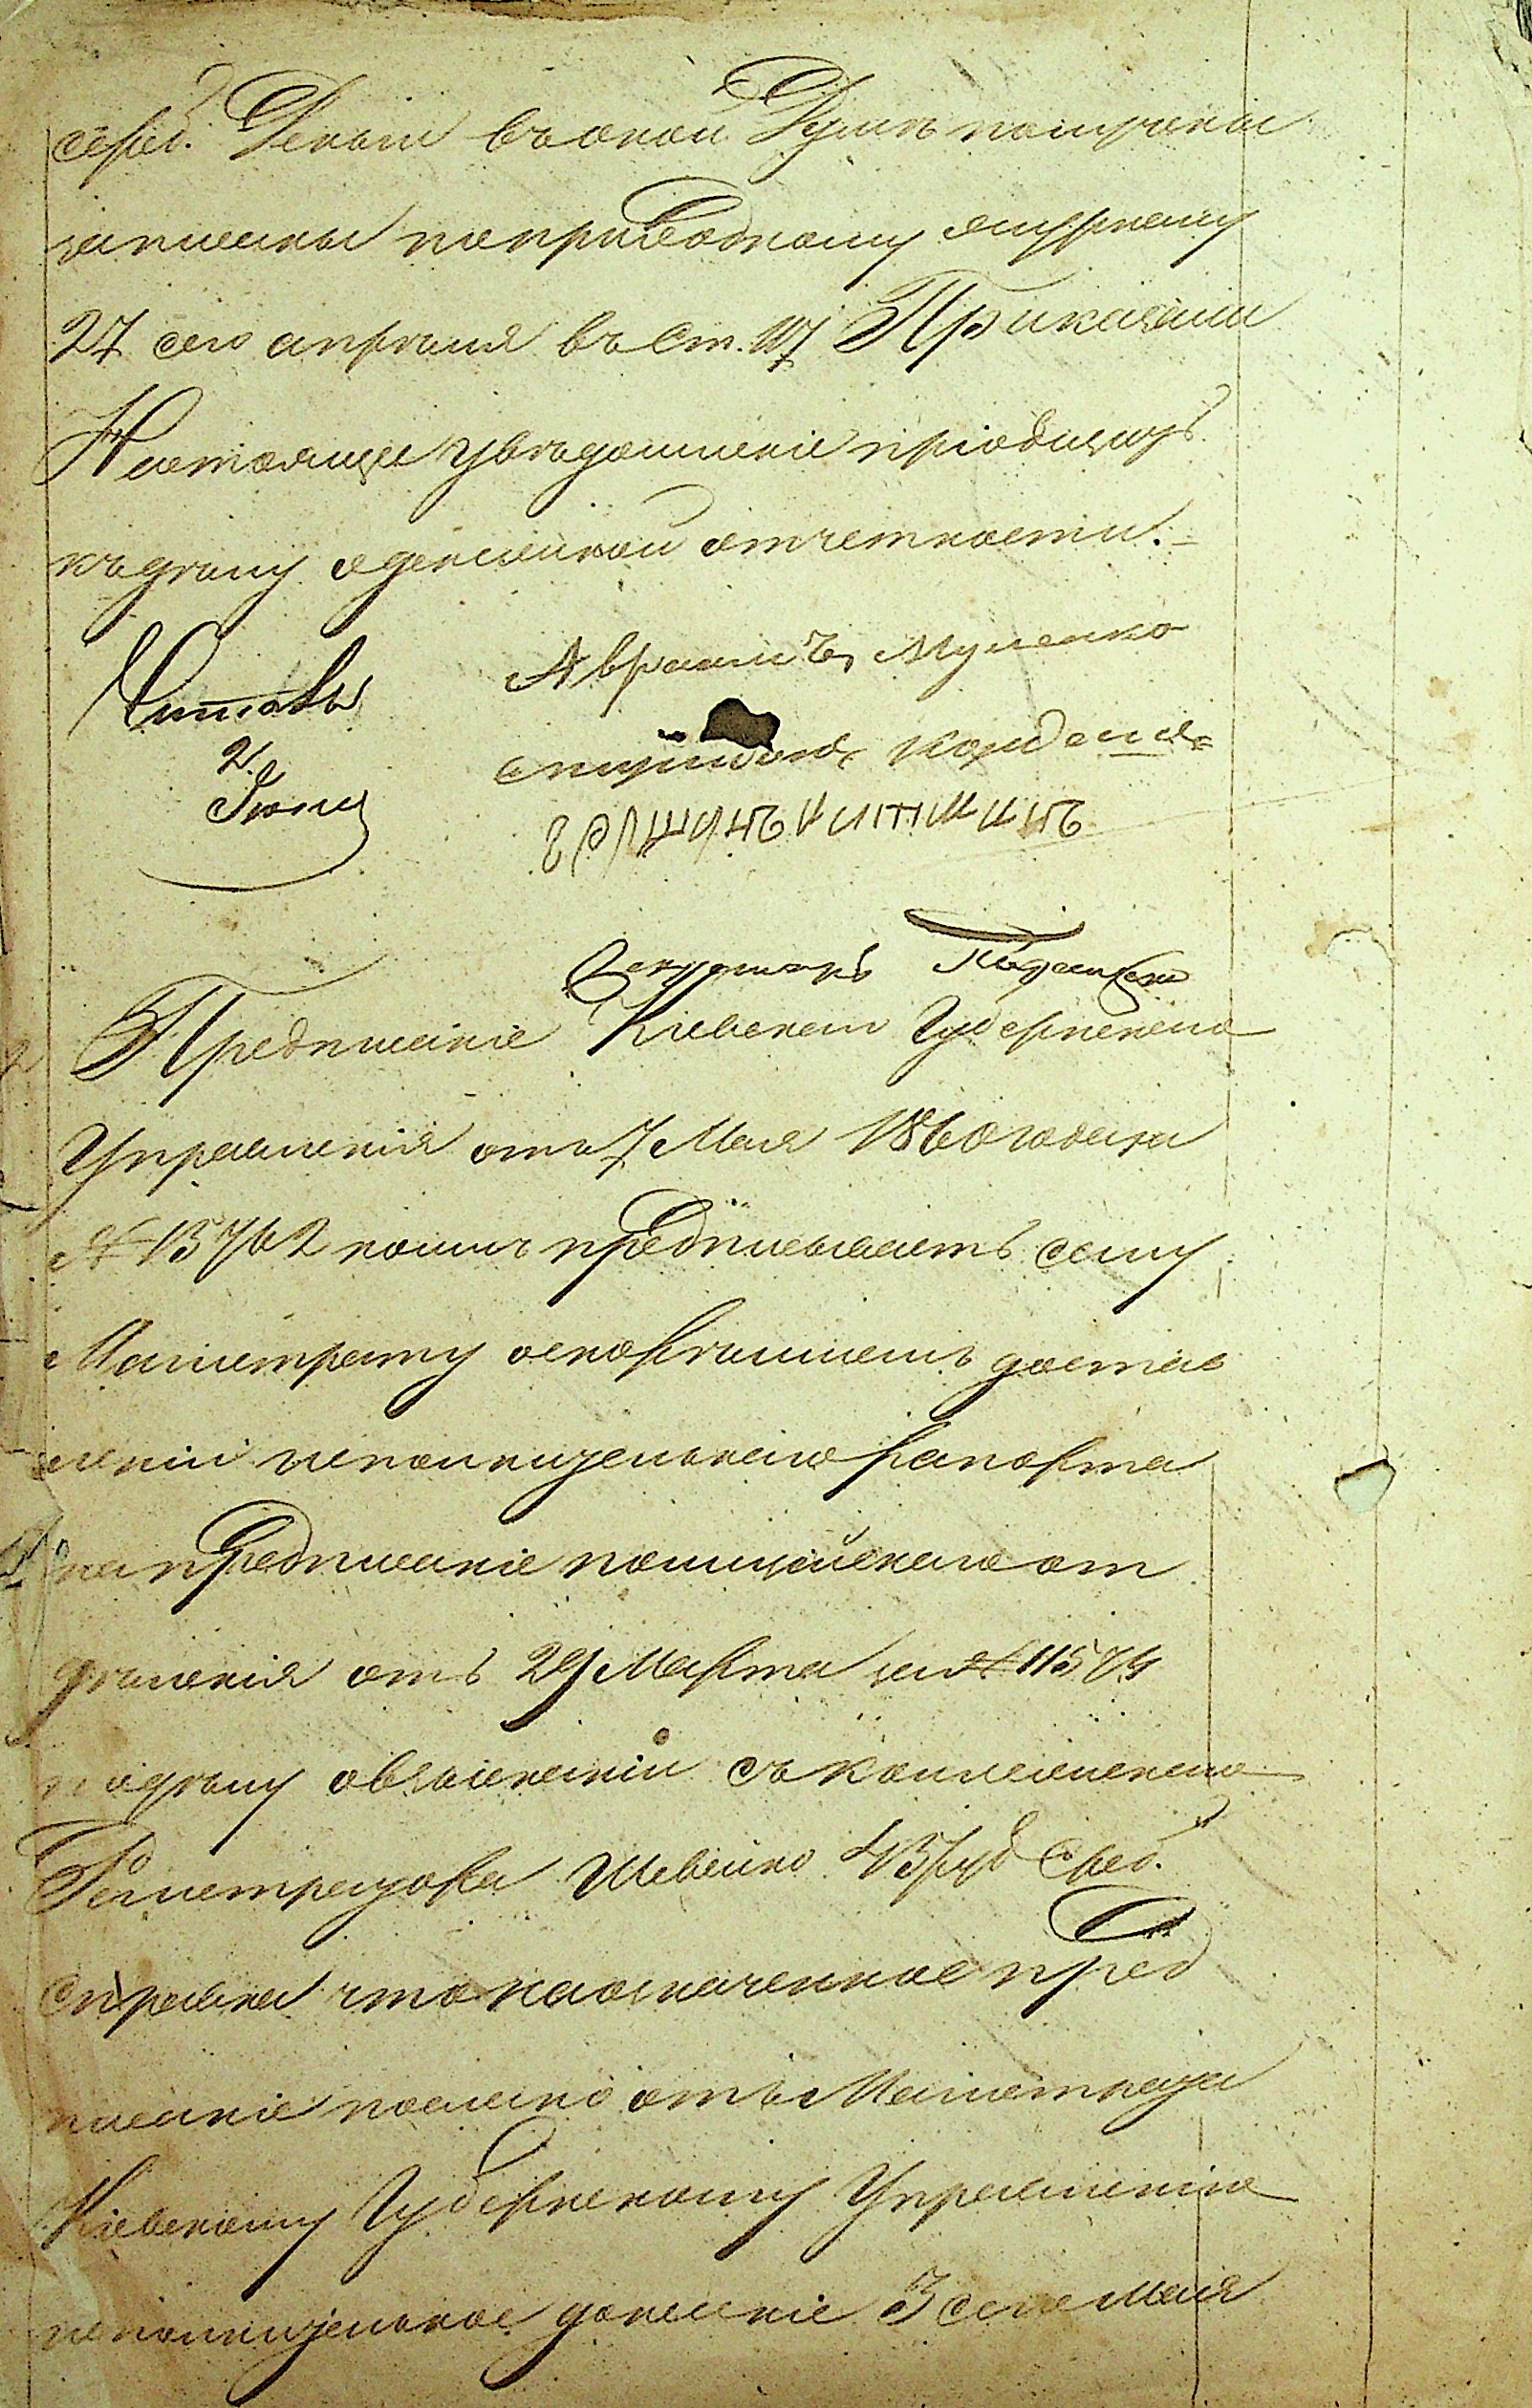 сереб. Деньги въ оной Думѣ получены
записаны по приходному журналу
27 сего апрѣля въ Ст. 117 Приказали
Настоящее увѣдомленіе пріобщить
къ дѣлу о денежной отчетности.
Читалъ
2
Іюня
Авраамъ Мусенко
Секретарь
Предписаніе Кіевскаго Губернскаго
Управленія отъ 7 Мая 1860 года за
№ 13762 коимъ предписываетъ сему
Магистрату о скорѣйшемъ достав
леніи исполнительнаго рапорта
на предписаніе полицейскаго от
дѣленія отъ 29 Марта за № 11574
по дѣлу о взысканіи съ коллежскаго
Регистратора Шевейко 43 руб Среб.
Справка что на означенное пред
писаніе послано отъ Магистрата
Кіевскому Губернскому Управленію
исполнительное донесеніе 3 сего Мая